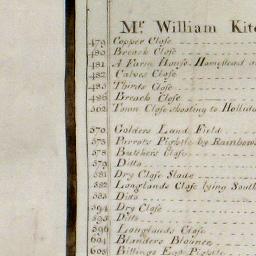 Mr William Kit
479 Copper Close
480 Breach Close
481 A Farm House, Homestead a
482 Calves Close
485 Thirds Close
486 Breach Close
562 Town Close abutting to Hollid
570 Golders Land Field
575 Parrots Pightle by Rainbow
578 Butchers Close
579 Ditto
581 Dry Close Slade
582 Longlands Close lying South
583 Ditto
594 Dry Close
595 Ditto
596 Longlands Close
604 Blanders Blounce
608 Billings End Pightle